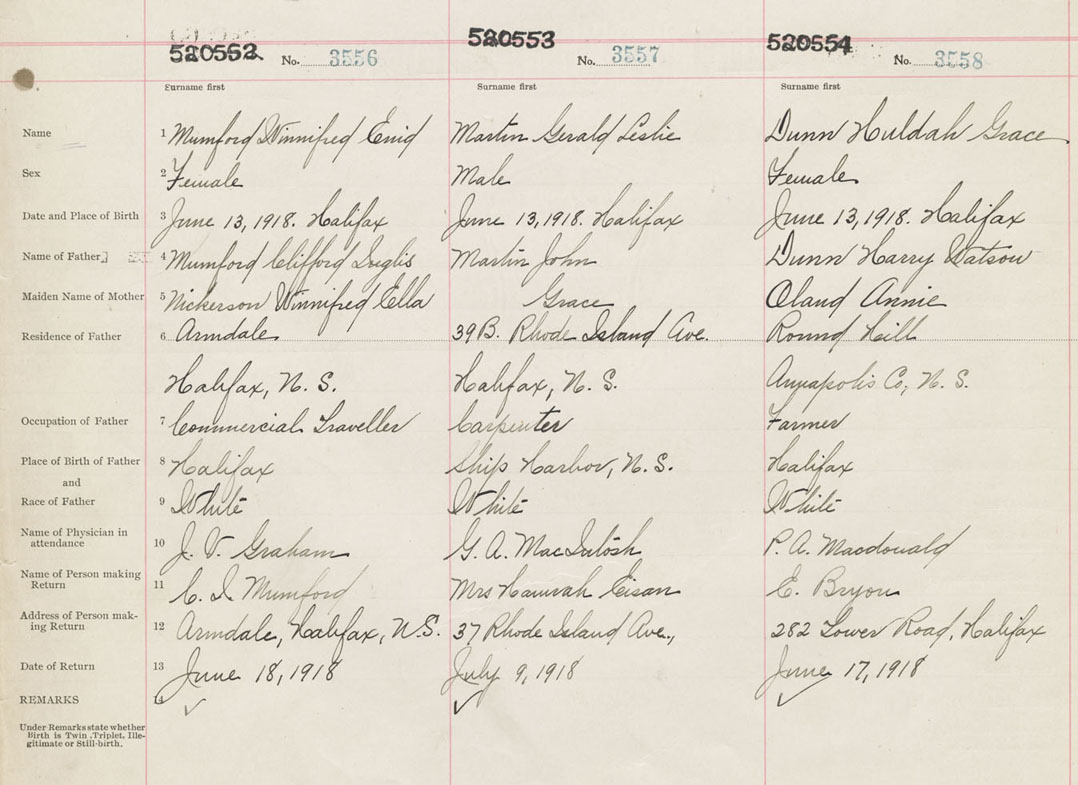 520552 520553 520554
No. 3556 No. 3557 No. 3558
Surname first Surname first Surname first
Name 1 Mumford Winnifred Enid Martin Gerald Leslie Dunn Huldah Grace
Sex 2 Female Male Female
Date and Place of Birth 3 June 13, 1918. Halifax June 13, 1918. Halifax June 13, 1918. Halifax
Name of Father 4 Mumford Clifford Inglis Martin John Dunn Harry Watson
Maiden Name of Mother 5 Nickerson Winnifred Ella Grace Oland Annie
Residence of Father 6 Armdale 39 B. Rhode Island Ave. Round Hill
Halifax, N. S. Halifax, N. S. Annapolis Co, N. S.
Occupation of Father 7 Commercial Traveller Carpenter Farmer
Place of Birth of Father 8 Halifax Ship Harbor, N. S. Halifax
and
Race of Father 9 White White White
Name of Physician in
attendance 10 J. V. Graham G. A. MacIntosh P. A. Macdonald
Name of Person making
Return 11 C. I. Mumford Mrs Hannah Eisan E. Bryon
Address of Person mak-
ing Return 12 Armdale, Halifax, N.S. 37 Rhode Island Ave., 282 Tower Road, Halifax
Date of Return 13 June 18, 1918 July 9, 1918 June 17, 1918
REMARKS 14
Under Remarks state whether
Birth is Twin, Triplet, Ille-
gitimate or Still-birth.